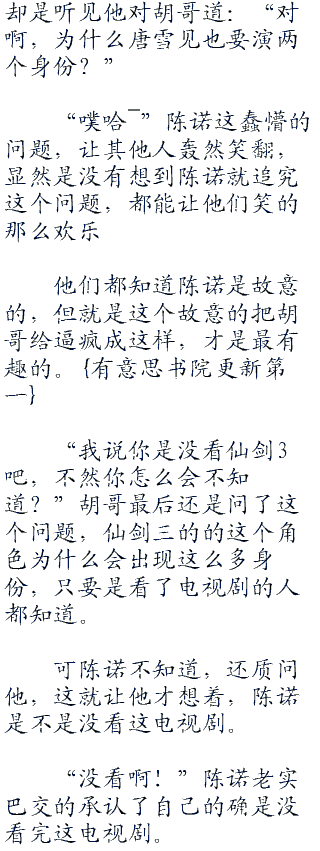 却是听见他对胡哥道：“对
啊，为什么唐雪见也要演两
个身份？”
“噗哈¯”陈诺这蠢懵的
问题，让其他人轰然笑翻，
显然是没有想到陈诺就追究
这个问题，都能让他们笑的
那么欢乐
他们都知道陈诺是故意
的，但就是这个故意的把胡
哥给逼疯成这样，才是最有
趣的。{有意思书院更新第
一}
“我说你是没看仙剑3
吧，不然你怎么会不知
道？”胡哥最后还是问了这
个问题，仙剑三的的这个角
色为什么会出现这么多身
份，只要是看了电视剧的人
都知道。
可陈诺不知道，还质问
他，这就让他才想着，陈诺
是不是没看这电视剧。
“没看啊！”陈诺老实
巴交的承认了自己的确是没
看完这电视剧。